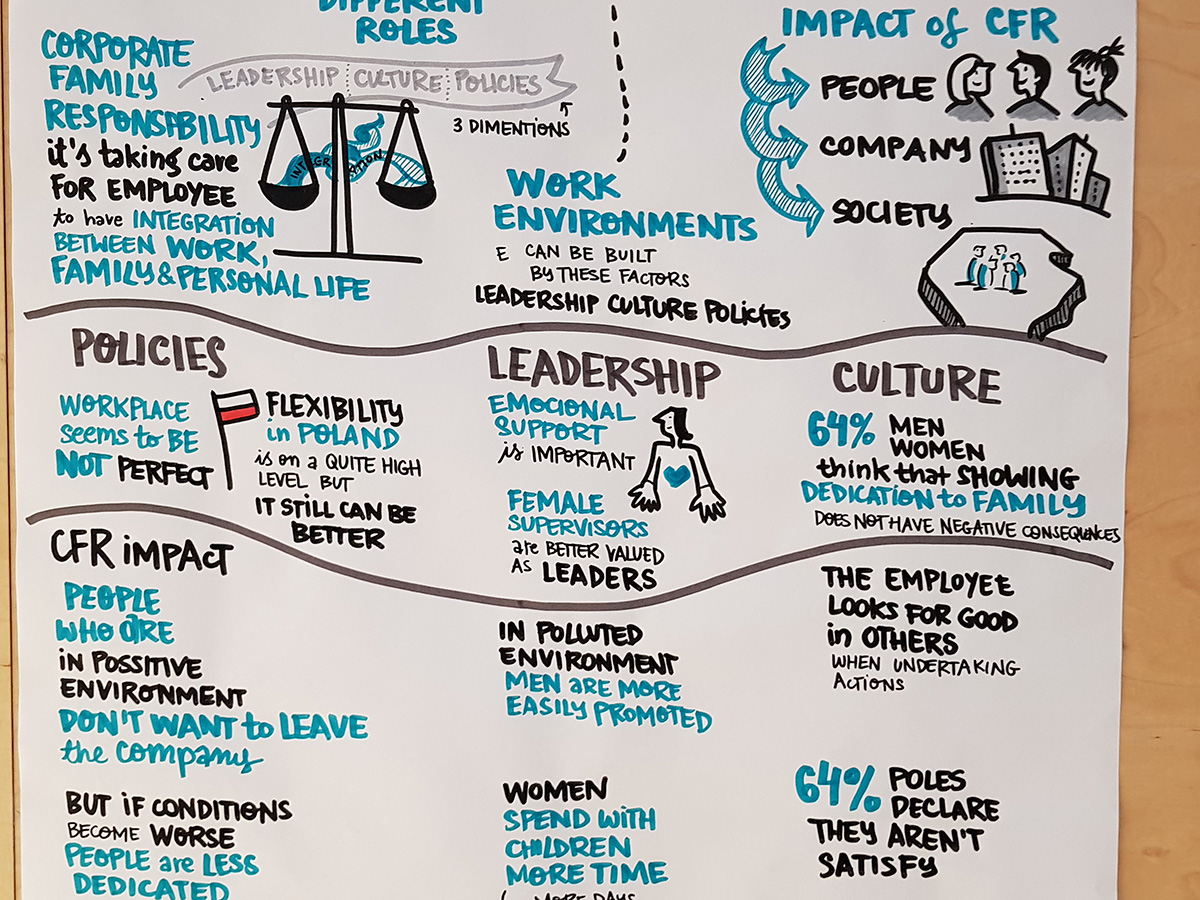 DIFFERENT
ROLES
CORPORATE
FAMILY
RESPONSABILITY
it's taking care
FOR EMPLOYEE
to have INTEGRATION
BETWEEN WORK,
FAMILY & PERSONAL LIFE
LEADERSHIP CULTURE POLICIES
3 DIMENTIONS
INTEGRATION
WORK
ENVIRONMENTS
E CAN BE BUILT
BY THESE FACTORS
LEADERSHIP CULTURE POLICIES
IMPACT of CFR
PEOPLE
COMPANY
SOCIETY
POLICIES
WORKPLACE
seems to BE
NOT PERFECT
FLEXIBILITY
in POLAND
is on a QUITE HIGH
LEVEL BUT
IT STILL CAN BE
BETTER
LEADERSHIP
EMOCIONAL
SUPPORT
is IMPORTANT
FEMALE
SUPERVISORS
are BETTER VALUED
AS LEADERS
CULTURE
64% MEN
WOMEN
think that SHOWING
DEDICATION to FAMILY
DOES NOT HAVE NEGATIVE CONSEQUENCES
CFR iMPACT
PEOPLE
WHO ARE
in POSSITIVE
ENVIRONMENT
DON'T WANT to LEAVE
the company
BUT iF CONDITIONS
BECOME WORSE
PEOPLE are LESS
DEDICATED
IN POLLUTED
ENVIRONMENT
MEN aRE MORE
EASILY PROMOTED
WOMEN
SPEND WiTH
CHILDREN
MORE TIME
MORE DAYS
THE EMPLOYEE
LOOKS FOR GOOD
in OTHERS
WHEN UNDERTAKING
ACTIONS
64% POLES
DECLARE
THEY AREN'T
SATISFY